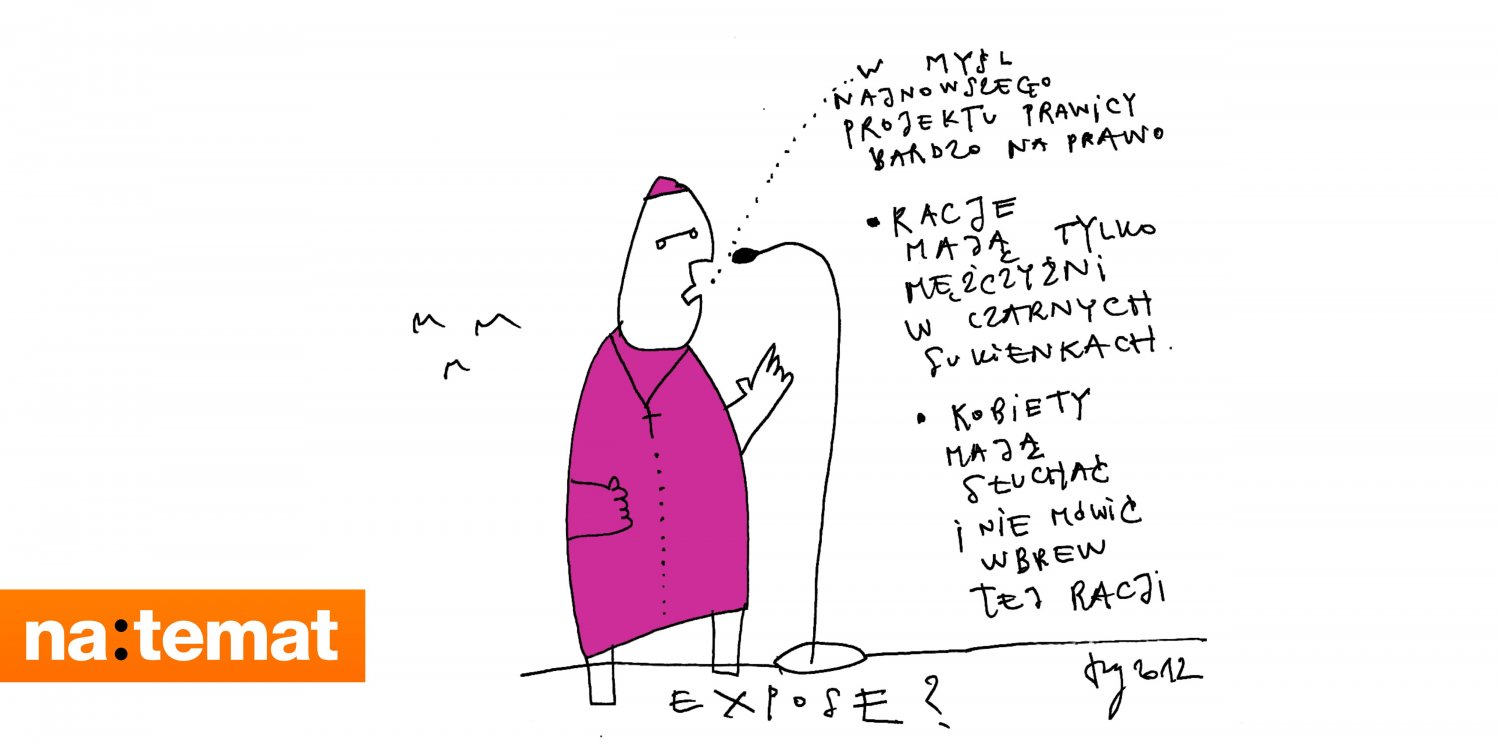 W MYŚL
NAJNOWSZEGO
PROJEKTU PRAWICY
BARDZO NA PRAWO
• RACJE
MAJĄ TYLKO
MĘŻCZYŹNI
W CZARNYCH
SUKIENKACH.
• KOBIETY
MAJĄ
SŁUCHAĆ
i NIE MÓWIĆ
WBREW
TEJ RACJI
na:temat
2012
EXPOSE?